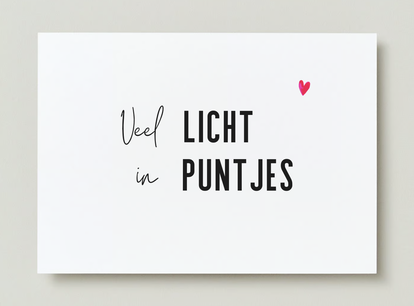 Veel LICHT
in PUNTJES